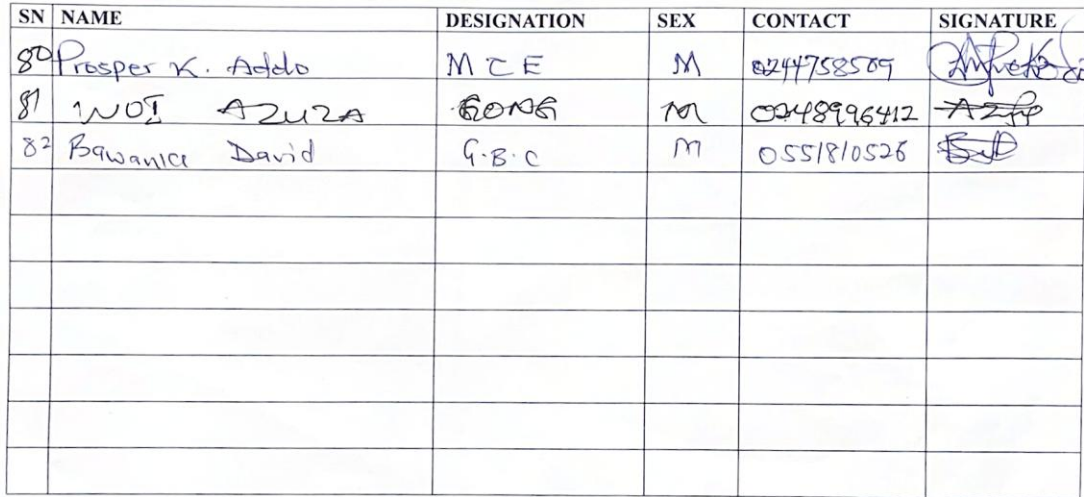 SN NAME DESIGNATION SEX CONTACT SIGNATURE
80 Prosper K. Addo MCE M 0244758509
81 WOI AZUZA GONG M 0248996412
82 Bawania David G.B.C M 0551810526